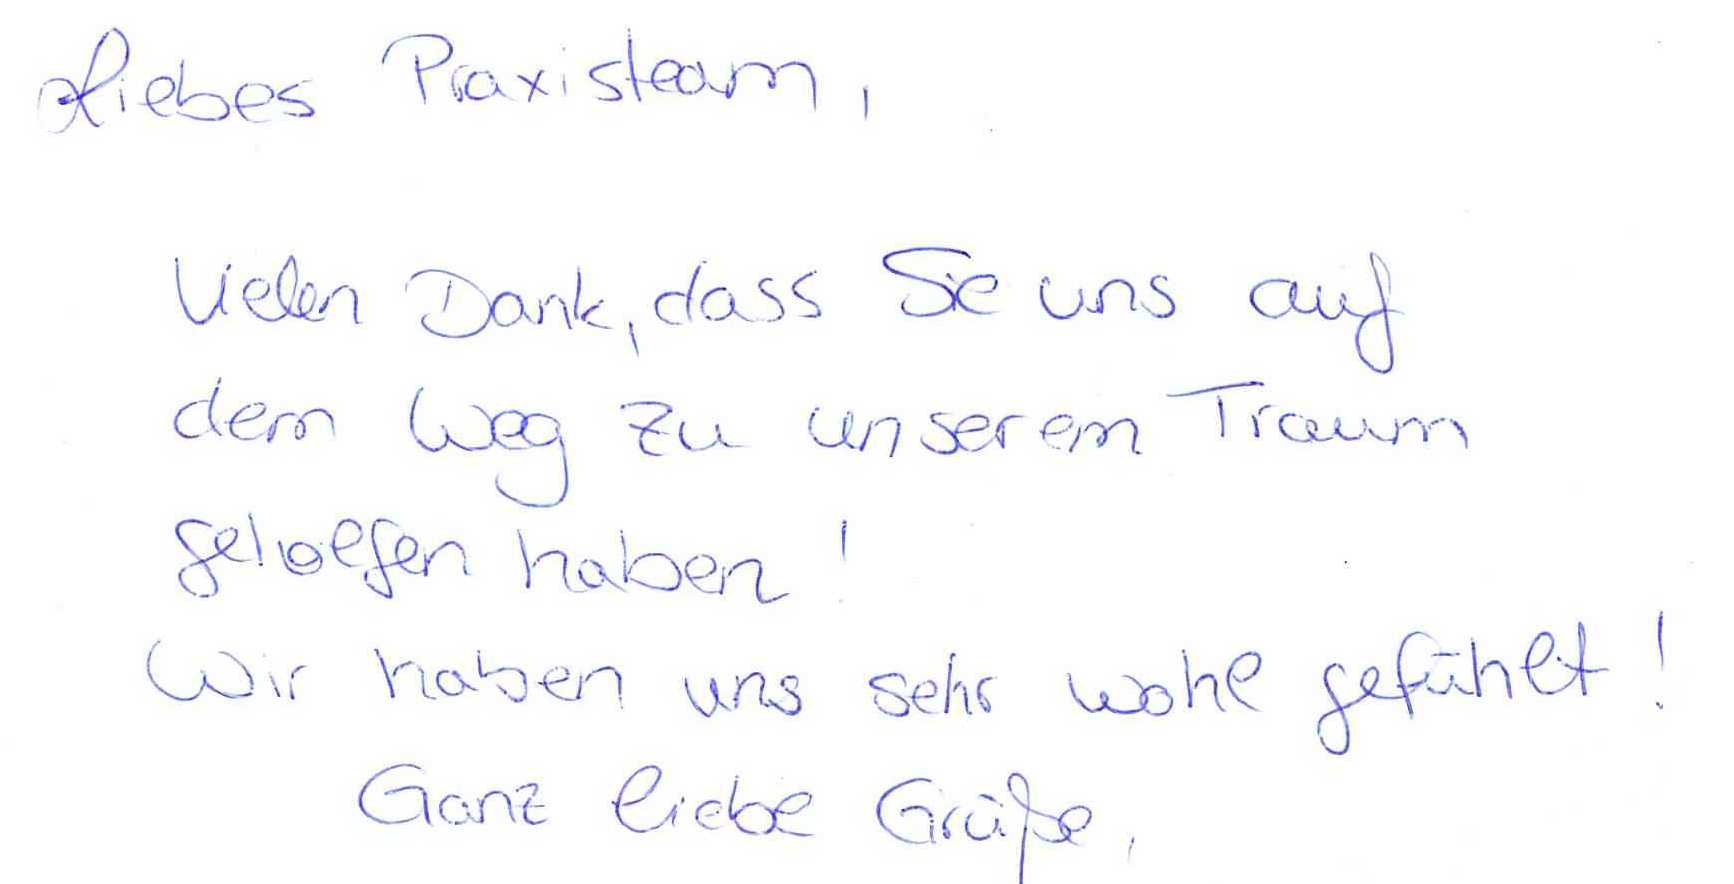 Liebes Praxisteam,
Vielen Dank, dass Sie uns auf
dem Weg zu unserem Traum
geholfen haben!
Wir haben uns sehr wohl gefühlt!
Ganz liebe Grüße,